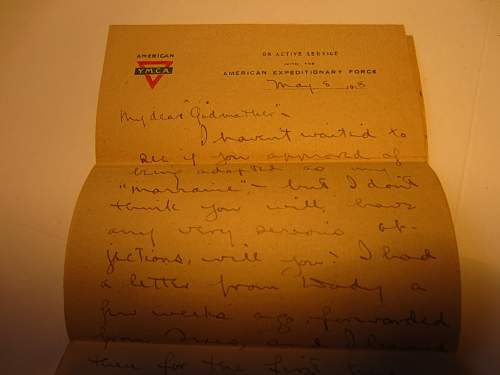 AMERICAN
YMCA
ON ACTIVE SERVICE
WITH THE
AMERICAN EXPEDITIONARY FORCE
May 8 1918
My dear "Godmother" -
I haven't waited to
see if you approved of
being adopted as my
"Marraine", - but I don't
think you will have
any very serious ob-
jections, will you? I had
a letter from Dady a
few weeks ago, forwarded
from and I learned
then for the first time